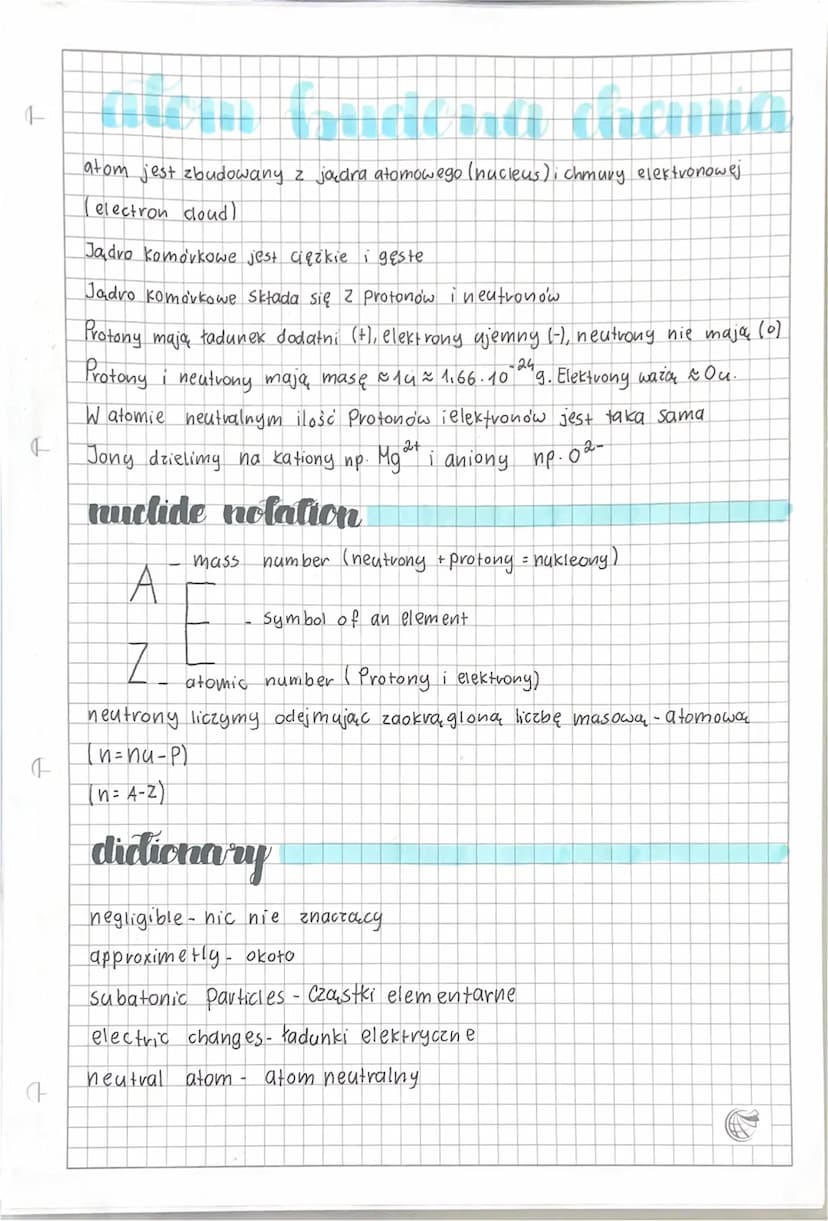 atom budowa chemia
atom jest zbudowany z jądra atomowego (nucleus) i chmury elektronowej
(electron cloud)
Jądro komórkowe jest ciężkie i gęste
Jądro komórkowe składa się z protonów i neutronów
Protony mają ładunek dodatni (+), elektrony ujemny (-), neutrony nie mają (0)
Protony i neutrony mają masę ≈ 1u ≈ 1,66 · 10⁻²⁴g. Elektrony ważą ≈ 0u.
W atomie neutralnym ilość protonów i elektronów jest taka sama
Jony dzielimy na kationy np. Mg²⁺ i aniony np. O²⁻
nuclide notation
A - mass number (neutrony + protony = nukleony)
E - symbol of an element
Z - atomic number (Protony i elektrony)
neutrony liczymy odejmując zaokrągloną liczbę masową - atomową
(n=nu-p)
(n= A-Z)
dictionary
negligible - nic nie znaczący
approximetly - około
subatonic particles - cząstki elementarne
electric changes - ładunki elektryczne
neutral atom - atom neutralny